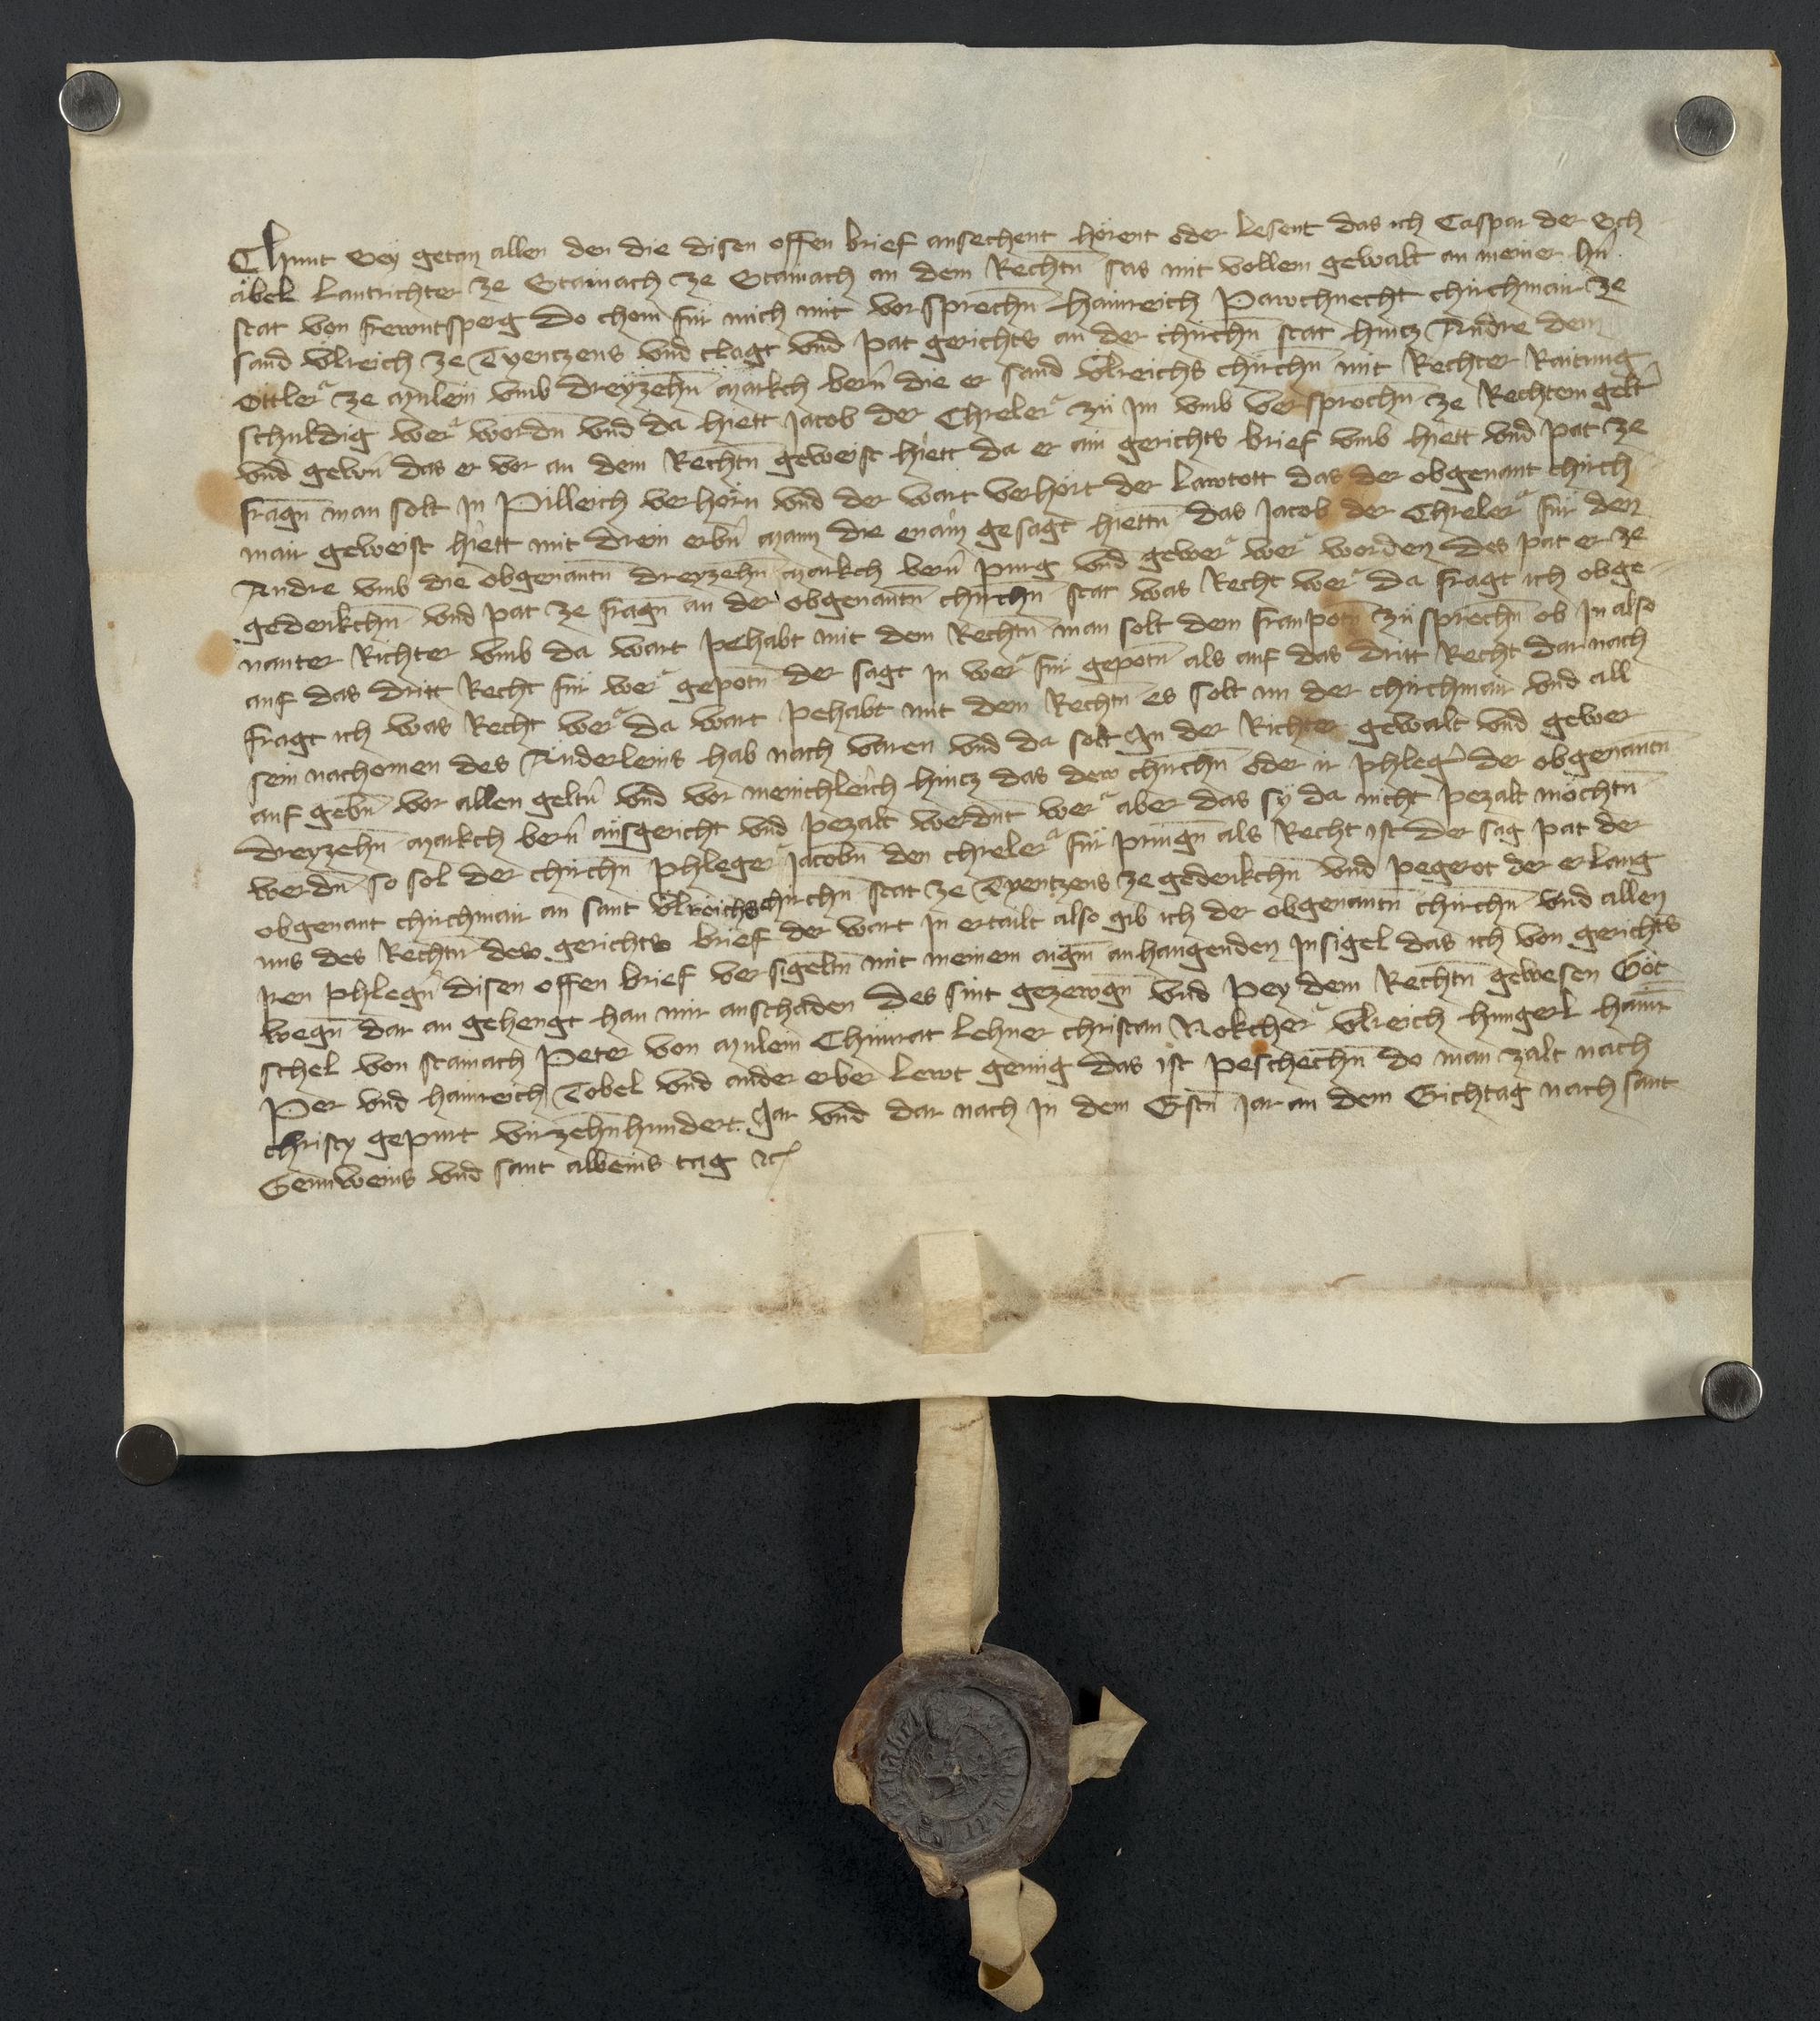 Chunt sey getan allen den die disen offen brief ansechent hörent oder lesent das ich Caspar der Sch
äbel Lantrichter ze Stainach ze Stainach an dem Rechtn̄ sas mit vollem gewalt an meiner hn̄
stat von frewntsperg do chom für mich mit vorsprechn̄ hainreich Pawchnecht chirchmair ze
sand vlreich ze Tyentzens vnd clagt vnd pat gerichts an der chirchn̄ stat hintz Andre dem
Ottler ze Mulein vmb dreyzehn̄ Markch bern̄ die er sand vlreichs chirchn̄ mit Rechter Raitung
schuldig wer wordn̄ vnd da hiett Jacob der Chreler zü Jm vmb versprochn̄ ze Rechtem gelt̄
vnd gewn̄ das er vor an dem Rechtn̄ geweist hiett da er ain gerichts brief vmb hiett vnd pat ze
fragn̄ man solt Jn Pilleich verhörn vnd der wart verhört der lawtott das der obgenant chirch
mair geweist hiett mit drein erbn̄ Mann die enaim gesagt hiettn̄ das Jacob der Chreler für den
Andre vmb die obgenantn̄ dreyzehn̄ Markch bern̄ purg vnd gewer wer worden des pat er ze
gedenkchn̄ vnd pat ze fragn̄ an der obgenantn̄ chirchn̄ stat was Recht wer da fragt ich obge
nanter Richter vmb da wart pehabt mit dem Rechtn̄ man solt dem franpotn̄ zü sprechn̄ ob Jn also
auf das dritt Recht für wer gepotn̄ der sagt Jn wer für gepotn̄ als auf das dritt Recht dar nach
fragt ich was Recht wer da wart pehabt mit dem Rechtn̄ es solt nu der chirchmair vnd all
sein nachomen des Änderleins hab nach varen vnd da solt Jn der Richter gewalt vnd gewer
auf gebn̄ vor allen geltn̄ vnd vor menichleich hintz das dew chirchn̄ oder ir phleger der obgenantn̄
dreyzehn̄ Markch bern̄ ausgericht vnd pezalt werdnt wer aber das sy da nicht pezalt möchtn̄
werdn̄ so sol der chirchn̄ phleger Jacobn̄ den chreler für pringn̄ als Recht ist der sag pat der
obgenant chirchmair an sant vlreichs chirchn̄ stat ze Tyentzens ze gedenkchn̄ vnd pegerot der erlang
nus des Rechtn̄ dew gerichts brief der wart Jn ertailt also gib ich der obgenantn̄ chirchn̄ vnd allen
Jren phlegn̄ disen offen brief versigeltn̄ mit meinem aigm̄ anhangenden Jnsigel das ich von gerichts
wegn̄ dar an gehengt han mir anschaden des sint gezewgn̄ vnd pey dem Rechtn̄ gewesen Göt
schel von stainach Peter von Mulein Chunrat Lehner christan Nokcher vlreich hungerl hainr̄
Per vnd hainreich Tobel vnd ander erber lewt genüg das ist peschechn̄ do man zalt nach
christy gepurt virzehnhundert Jar vnd dar nach Jn dem Erstn̄ Jar an dem Erichtag nach sant
Genuweins vnd sant albeins tag etc